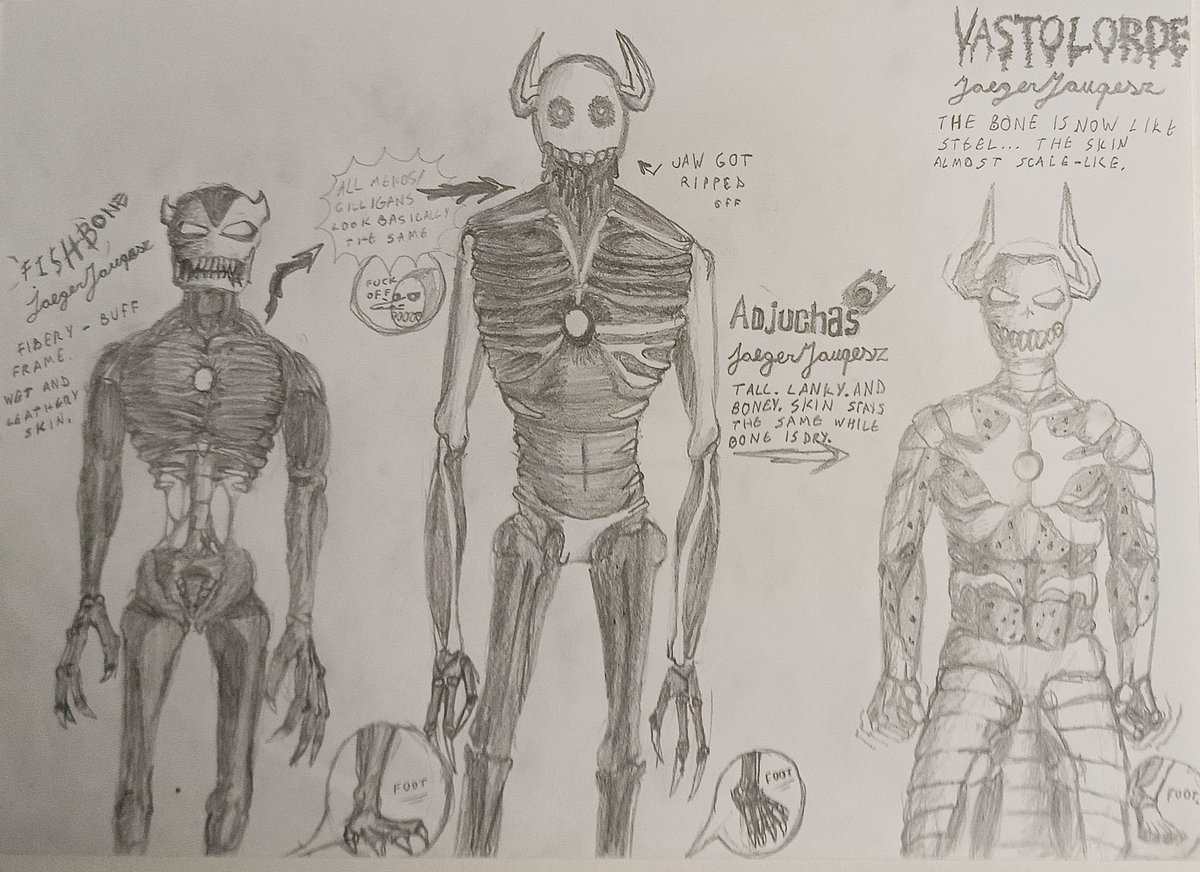 FISHBONE
JaegerJaugesz
FIBERY - BUFF
FRAME.
WET AND
LEATHERY
SKIN.
ALL MENOS/
GILLIGANS
LOOK BASICALLY
THE SAME
FUCK
OFF
JAW GOT
RIPPED
OFF
ADJUCHAS
JaegerJaugesz
TALL. LANKY. AND
BONEY. SKIN STAYS
THE SAME WHILE
BONE IS DRY.
VASTOLORDE
JaegerJaugesz
THE BONE IS NOW LIKE
STEEL... THE SKIN
ALMOST SCALE-LIKE.
FOOT
FOOT
FOOT